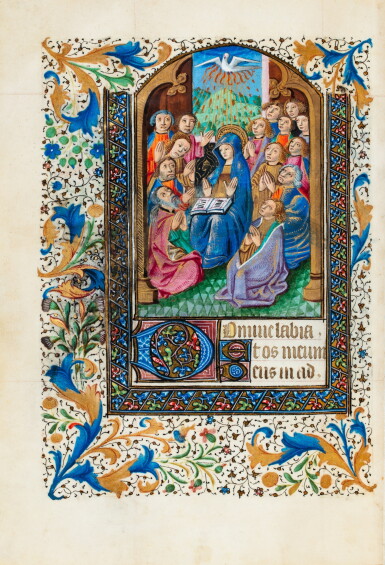 DOmine labia
Et os meum
Deus in ad